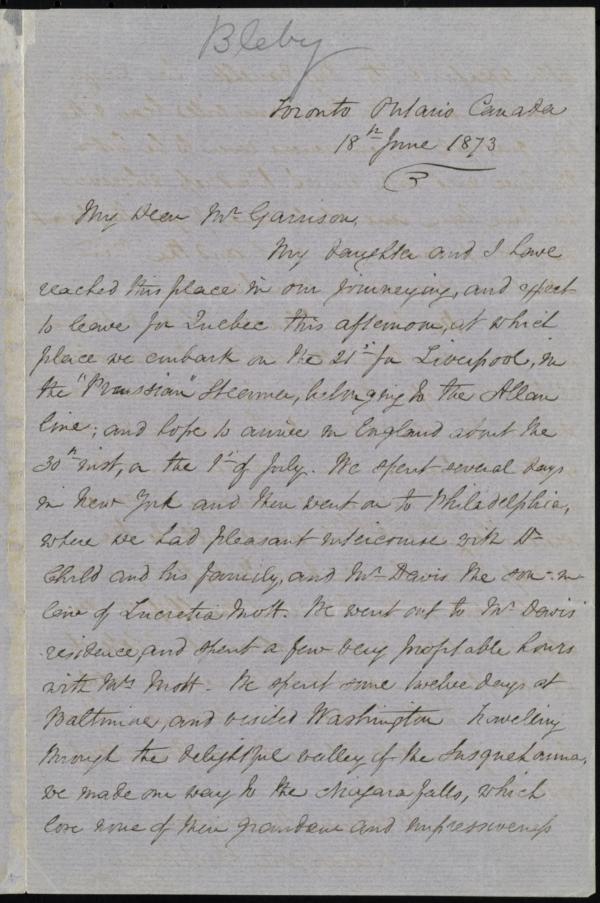 Bleby
Toronto Ontario Canada
18th June 1873
My Dear Mr Garrison,
My daughter and I have
reached this place in our journeying, and expect
to leave for Quebec this afternoon, at which
place we embark on the 21st for Liverpool, in
the "Prussian" Steamer, belonging to the Allan
line; and hope to arrive in England about the
30th inst, or the 1st of July. We spent several days
in New York and then went on to Philadelphia,
where we had pleasant intercourse with Dr
Child and his family, and Mr Davis the son-in
law of Lucretia Mott. We went out to Mr Davis'
residence, and spent a few very profitable hours
with Mrs Mott. We spent some twelve days at
Baltimore, and visited Washington. Travelling
through the delightful valley of the Susquehanna,
we made our way to the Niagara falls, which
lose none of their grandeur and impressiveness